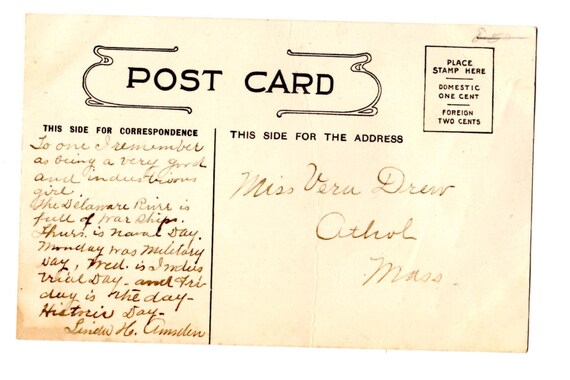 POST CARD
PLACE
STAMP HERE
DOMESTIC
ONE CENT
FOREIGN
TWO CENTS
THIS SIDE FOR CORRESPONDENCE
To one I remember
as being a very good
and industrious
girl.
The Delaware River is
full of War Ships.
Thurs. is Naval Day.
Monday was Military
Day, Wed. is Indus
trial Day - and Fri-
day is the day -
Historic Day -
Linda H. Amsden
THIS SIDE FOR THE ADDRESS
Miss Vera Drew
Athol
Mass.